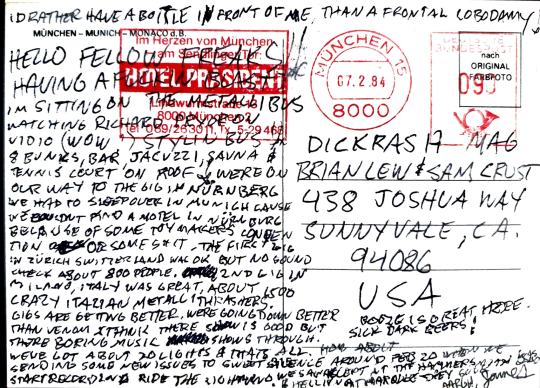 I'D RATHER HAVE A BOTTLE IN FRONT OF ME, THAN A FRONTAL LOBODOMY!
MÜNCHEN – MUNICH – MONACO d. B.
HELLO FELLOW FREAKS
HAVING A
IM SITTING ON THE METALLIBUS
WATCHING RICHARD PRYOR ON
VIDIO (WOW!) STYLIN BUS
& BUNKS, BAR, JACUZZI, SAUNA &
TENNIS COURT ON ROOF. WERE ON
OUR WAY TO THE GIG IN NÜRNBERG
WE HAD TO SLEEPOVER IN MUNICH CAUSE
WE COULDNT FIND A MOTEL IN NÜRNBURG
BECAUSE OF SOME TOYMAKERS CONVEN
TION OR SOME SHIT. THE FIRST GIG
IN ZÜRICH SWITZERLAND WAS OK BUT NO SOUND
CHECK ABOUT 800 PEOPLE. 2ND GIG IN
MILANO, ITALY WAS GREAT, ABOUT 1500
CRAZY ITALIAN METALLITHRASHERS.
GIGS ARE GETTING BETTER. WERE GOING DOWN BETTER
THAN VENOM I THINK THERE SHOW IS GOOD BUT
THERE BORING MUSIC SHOWS THROUGH.
WE'VE GOT ABOUT 20 LIGHTS & THATS ALL. HOW ABOUT
SENDING SOME NEW ISSUES TO SWEET SILENCE AROUND FEB 20 WHEN WE
START RECORDING RIDE THE LIGHTNING
Im Herzen von München
am Sendlinger Tor:
HOTEL PRÄSIDENT
8000 München 2
Tel. 089/263011, Tx. 5-29 468
MÜNCHEN 15
07.2.84
8000
DEUTSCHE
BUNDESPOST
nach
ORIGINAL
FARBFOTO
DICKRASH MAG
BRIAN LEW & SAM CRUST
438 JOSHUA WAY
SUNNYVALE, CA.
94086
USA
BOOZE IS GREAT, HERE.
SICK DARK BEERS!